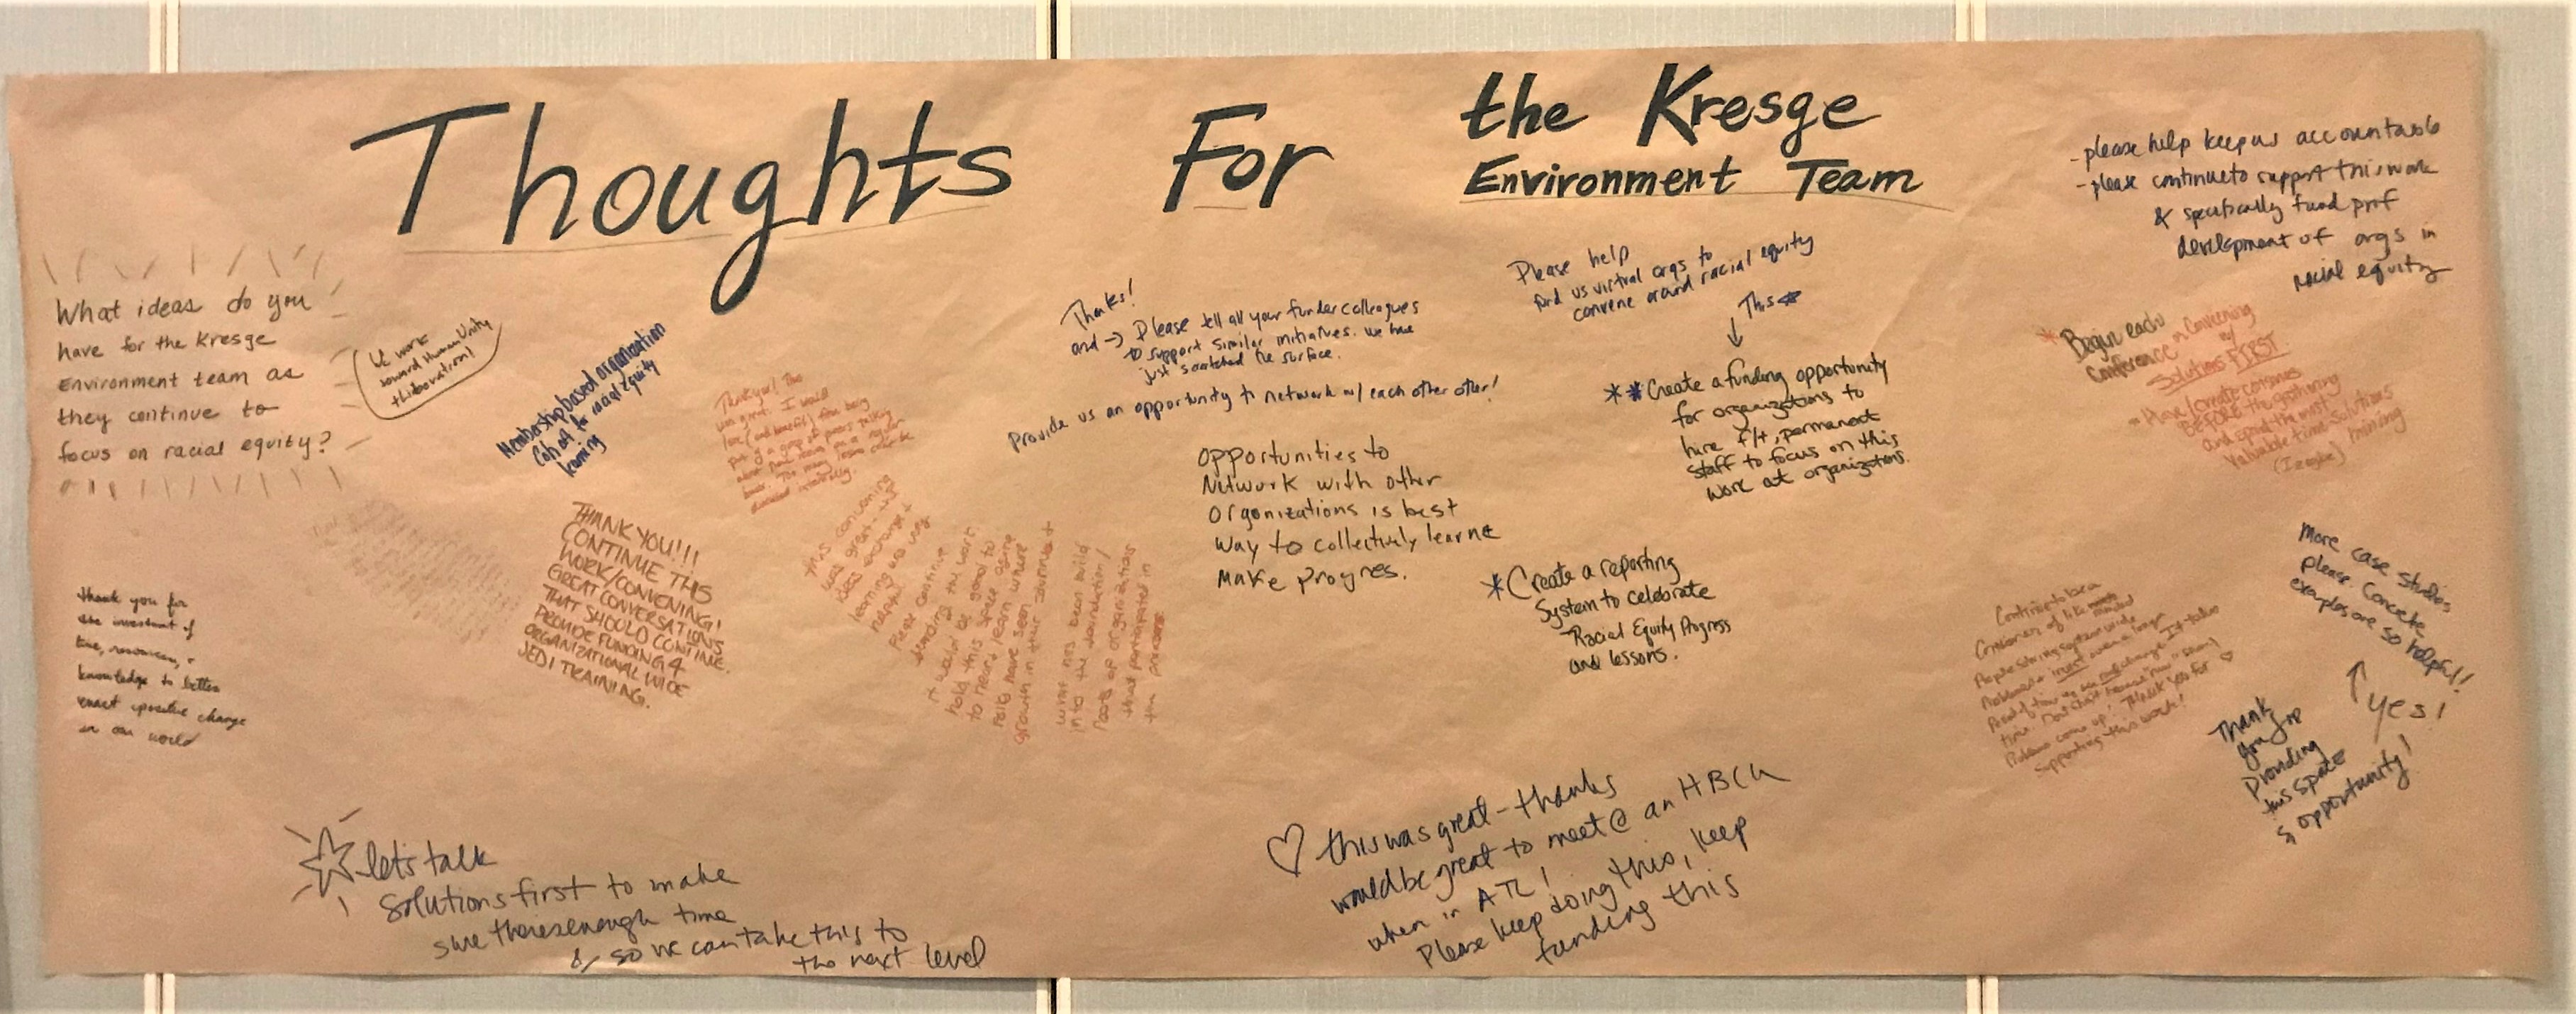 Thoughts For the Kresge
Environment Team
What ideas do you
have for the Kresge
Environment team as
they continue to
focus on racial equity?
work
toward Human Unity
+ Liberation!
Membership based organization
Cohort for racial equity
learning
Thank you! This
was great. I would
love (and benefit) from being
part of a group of peers talking
about
THANK YOU!!!
CONTINUE THIS
WORK/CONVENING!
GREAT CONVERSATIONS
THAT SHOULD CONTINUE.
PROVIDE FUNDING 4
ORGANIZATIONAL WIDE
JEDI TRAINING.
This convening
was great - the
idea exchange +
learning was very
helpful.
Please continue
funding the work.
it would be good to
hold this space again
to hear / learn where
folks have seen
growth in their
what has been build
into the foundation /
roots of organizations
that participated in
the process.
thank you for
the investment of
time, resources, +
knowledge to better
enact positive change
in our world
let's talk
solutions first to make
sure theres enough time
& so we can take this to
the next level
Thanks!
and → Please tell all your funder colleagues
to support similar initiatives. We have
just scratched the surface.
Provide us an opportunity to network w/ each other other!
Opportunities to
Network with other
Organizations is best
way to collectively learn &
Make progres.
Please help
fund us virtual orgs to
convene around racial equity
This
** Create a funding opportunity
for organizations to
hire f/t, permanent
staff to focus on this
work at organizations.
* Create a reporting
System to celebrate
Racial Equity Progress
and lessons.
♡ this was great - thanks
would be great to meet @ an HBCU
when in ATL!
Please keep doing this, keep
funding this
- please help keep us accountable
- please continue to support this work
& specifically fund prof
development of orgs in
racial equity
* Begin each
Conference or Convening
w/
Solutions FIRST
- Have/create
BEFORE the gathering
and spend the most
valuable time Solutions
mining
More case studies
please. Concrete
examples are so helpful!
↑
yes!
Continue to be a
of like minded
People solving system wide
Problems + invest over a longer
Period of time
time. Don't chase
Problems come up! Thank you for ♡
supporting this work!
Thank
you for
Providing
this space
& opportunity!